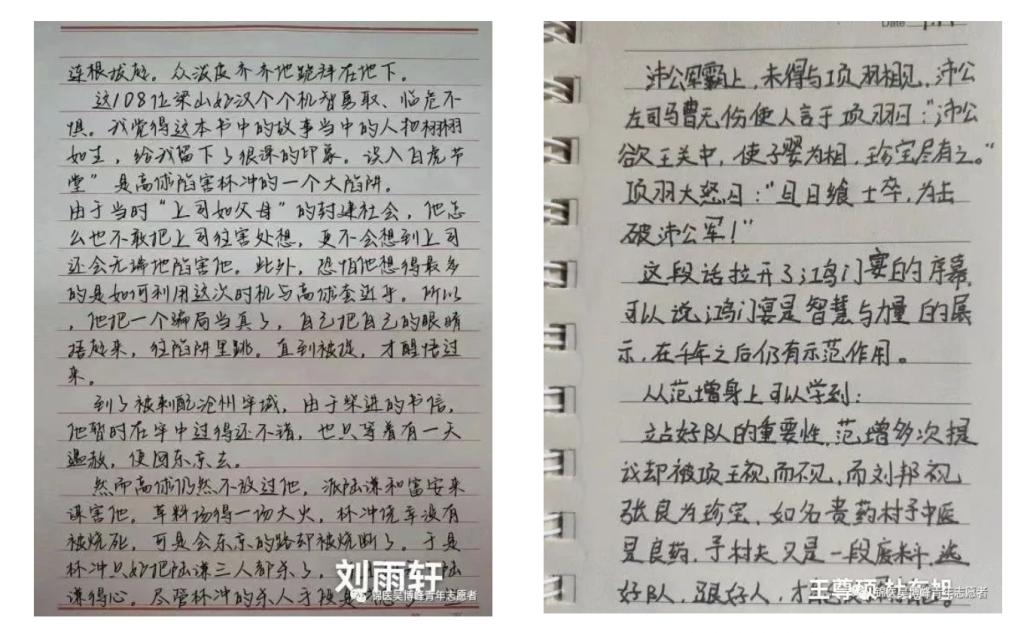 连根拔起。众泼皮齐齐地跪拜在地下。
这108位梁山好汉个个机智勇取、临危不
惧。我觉得这本书中的故事当中的人物栩栩
如生，给我留下了很深的印象。误入白虎节
堂”是高俅陷害林冲的一个大陷阱。
由于当时“上司如父母”的封建社会，他怎
么也不敢把上司往害处想，更不会想到上司
还会无谛地陷害他。此外，恐怕他想得最多
的是如何利用这次时机与高俅套近乎。所以
，他把一个骗局当真了，自己把自己的眼睛
捂起来，往陷阱里跳。直到被捉，才醒悟过
来。
到了被刺配沧州牢城，由于柴进的书信，
他暂时在牢中过得还不错，也只等着有一天
遇赦，便回东京去。
然而高俅仍然不放过他，派陆谦和富安来
谋害他。草料场得一场大火，林冲侥幸没有
被烧死，可是会东京的路却被烧断了。于是
林冲只好把陆谦三人都杀了，陆
谦得心。尽管林冲的杀人手段是
刘雨轩
锦医吴博峰青年志愿者
Date
沛公军霸上，未得与项羽相见，沛公
左司马曹无伤使人言于项羽曰：“沛公
欲王关中，使子婴为相，珍宝尽有之。“
项羽大怒曰：“旦日飨士卒，为击
破沛公军！”
这段话拉开了鸿门宴的序幕，
可以说，鸿门宴是智慧与力量的展
示，在千年之后仍有示范作用。
从范增身上可以学到：
站好队的重要性，范增多次提
议却被项王视而不见，而刘邦视
张良为珍宝，如名贵药材予中医
是良药，予村夫又是一段废料，选
好队，跟好人，才
王尊硕 杜东旭
锦医吴博峰青年志愿者